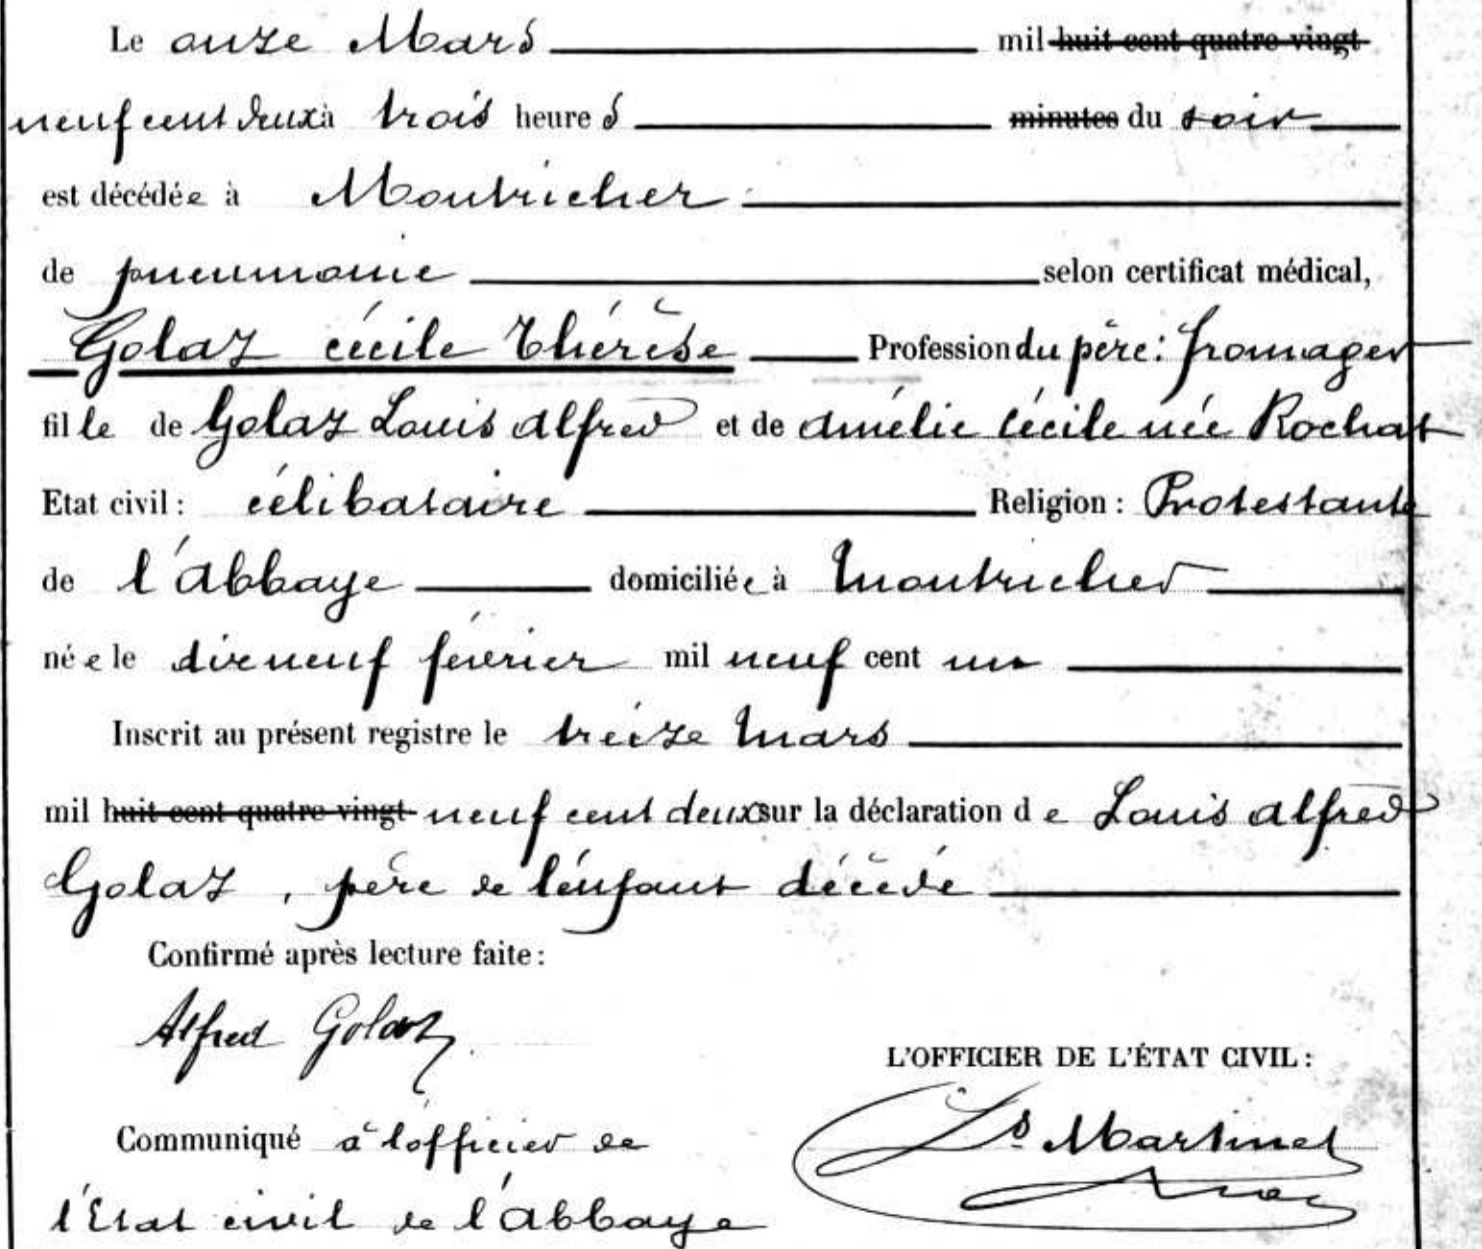 Le onze Mars mil huit cent quatre-vingt
neuf cent deux à trois heures minutes du soir
est décédée à Montricher
de pneumonie selon certificat médical,
Golaz Cécile Thérèse Profession du père: fromager
fille de Golaz Louis Alfred et de Amélie Cécile née Rochat
Etat civil: célibataire Religion: Protestante
de l'Abbaye domiciliée à Montricher
née le dix neuf février mil neuf cent un
Inscrit au présent registre le treize Mars
mil huit cent quatre-vingt neuf cent deux sur la déclaration de Louis Alfred
Golaz, père de l'enfant décédé
Confirmé après lecture faite:
Alfred Golaz
L'OFFICIER DE L'ÉTAT CIVIL:
Ls Martinet
Communiqué à l'officier de
l'Etat civil de l'Abbaye